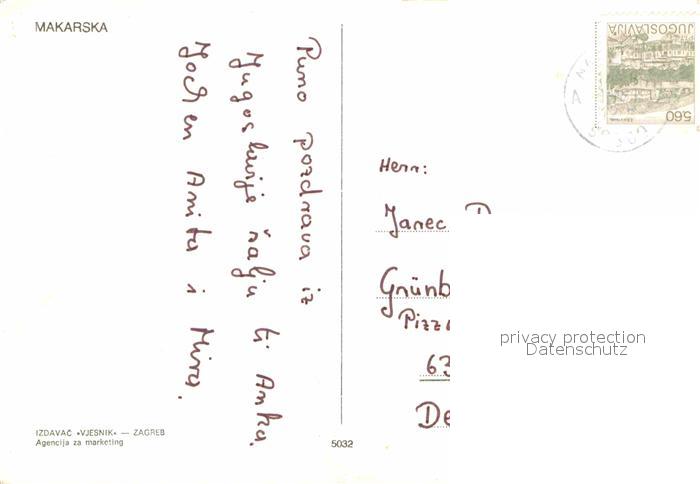 MAKARSKA
Puno pozdrava iz
Jugoslavije šalju ti Anka,
Jochen Anita i Mira.
JUGOSLAVIJA
5.60
Herr:
Janec
Grünb
Pizz
63
De
privacy protection
Datenschutz
IZDAVAČ «VJESNIK» — ZAGREB
Agencija za marketing
5032